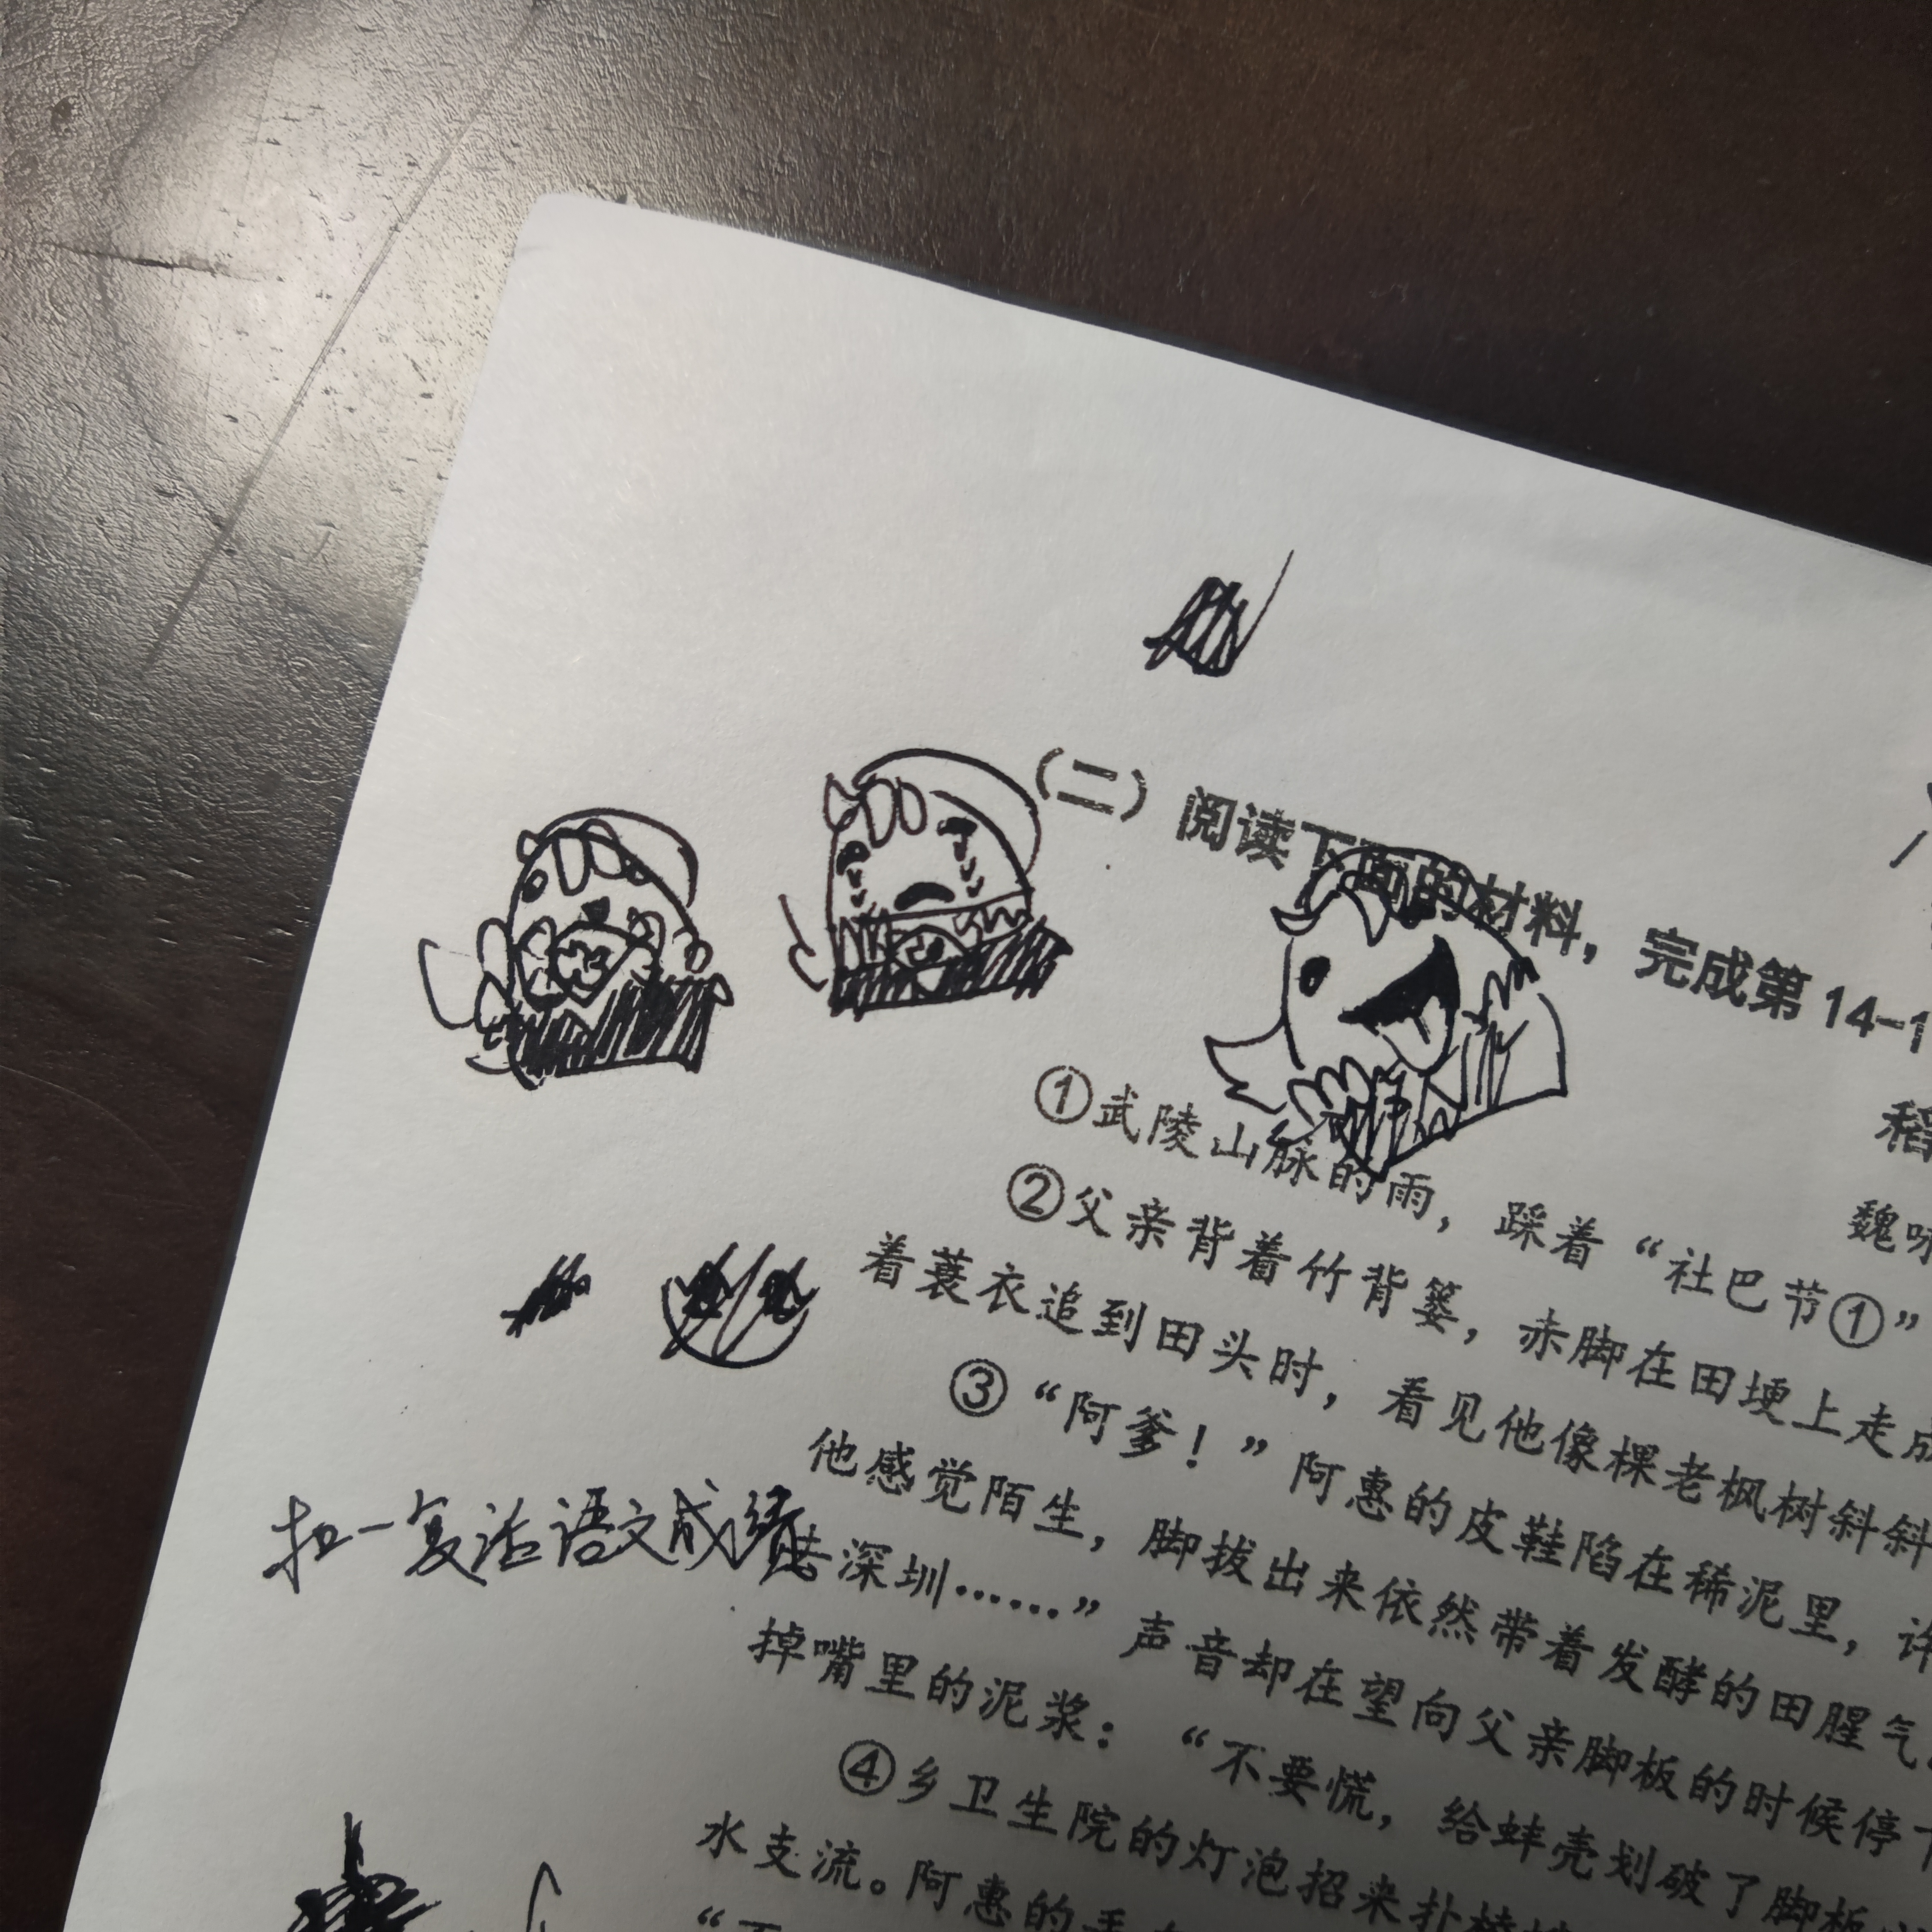 （二）阅读下面的材料，完成第14-1
稻
魏
①武陵山脉的雨，踩着“社巴节①”
②父亲背着竹背篓，赤脚在田埂上走成
着蓑衣追到田头时，看见他像棵老枫树斜斜
③“阿爹！”阿惠的皮鞋陷在稀泥里，许
他感觉陌生，脚拔出来依然带着发酵的田腥气
扣一复活语文成绩
去深圳……”声音却在望向父亲脚板的时候停
掉嘴里的泥浆：“不要慌，给蚌壳划破了脚板
④乡卫生院的灯泡招来扑棱
水支流。阿惠的手
“不